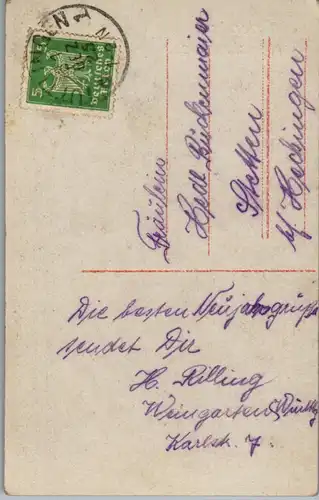 5
5
Deutsches Reich
Fräulein
Hedl.
Stetten
b/ Hechingen
Die besten Neujahrsgrüße
sendet Dir
H. Rilling
Weingarten (Württbg
Karlstr. 7.